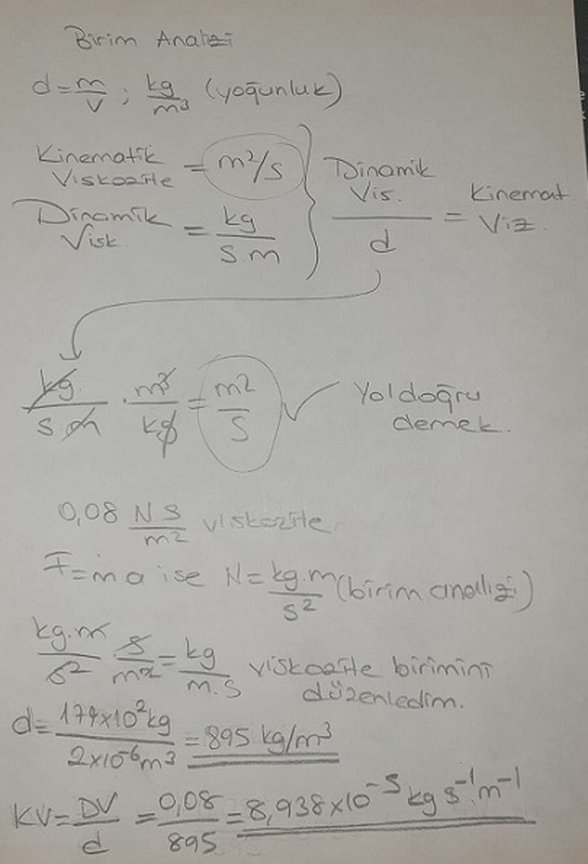 Birim Analizi
d = m/V ; kg/m³ (yoğunluk)
Kinematik Viskozite = m²/s
Dinamik Visk. = kg/s.m
Dinamik Vis./d = Kinemat Viz.
kg/s.m . m³/kg = m²/s ✓ Yol doğru demek.
0,08 N.S/m² viskozite.
F=m a ise N = kg.m/s² (birim analizi)
kg.m/s² s/m² = kg/m.s viskozite birimini düzenledim.
d = 179x10² kg/2x10⁻⁶m³ = 895 kg/m³
KV = DV/d = 0,08/895 = 8,938x10⁻⁵ kg s⁻¹.m⁻¹